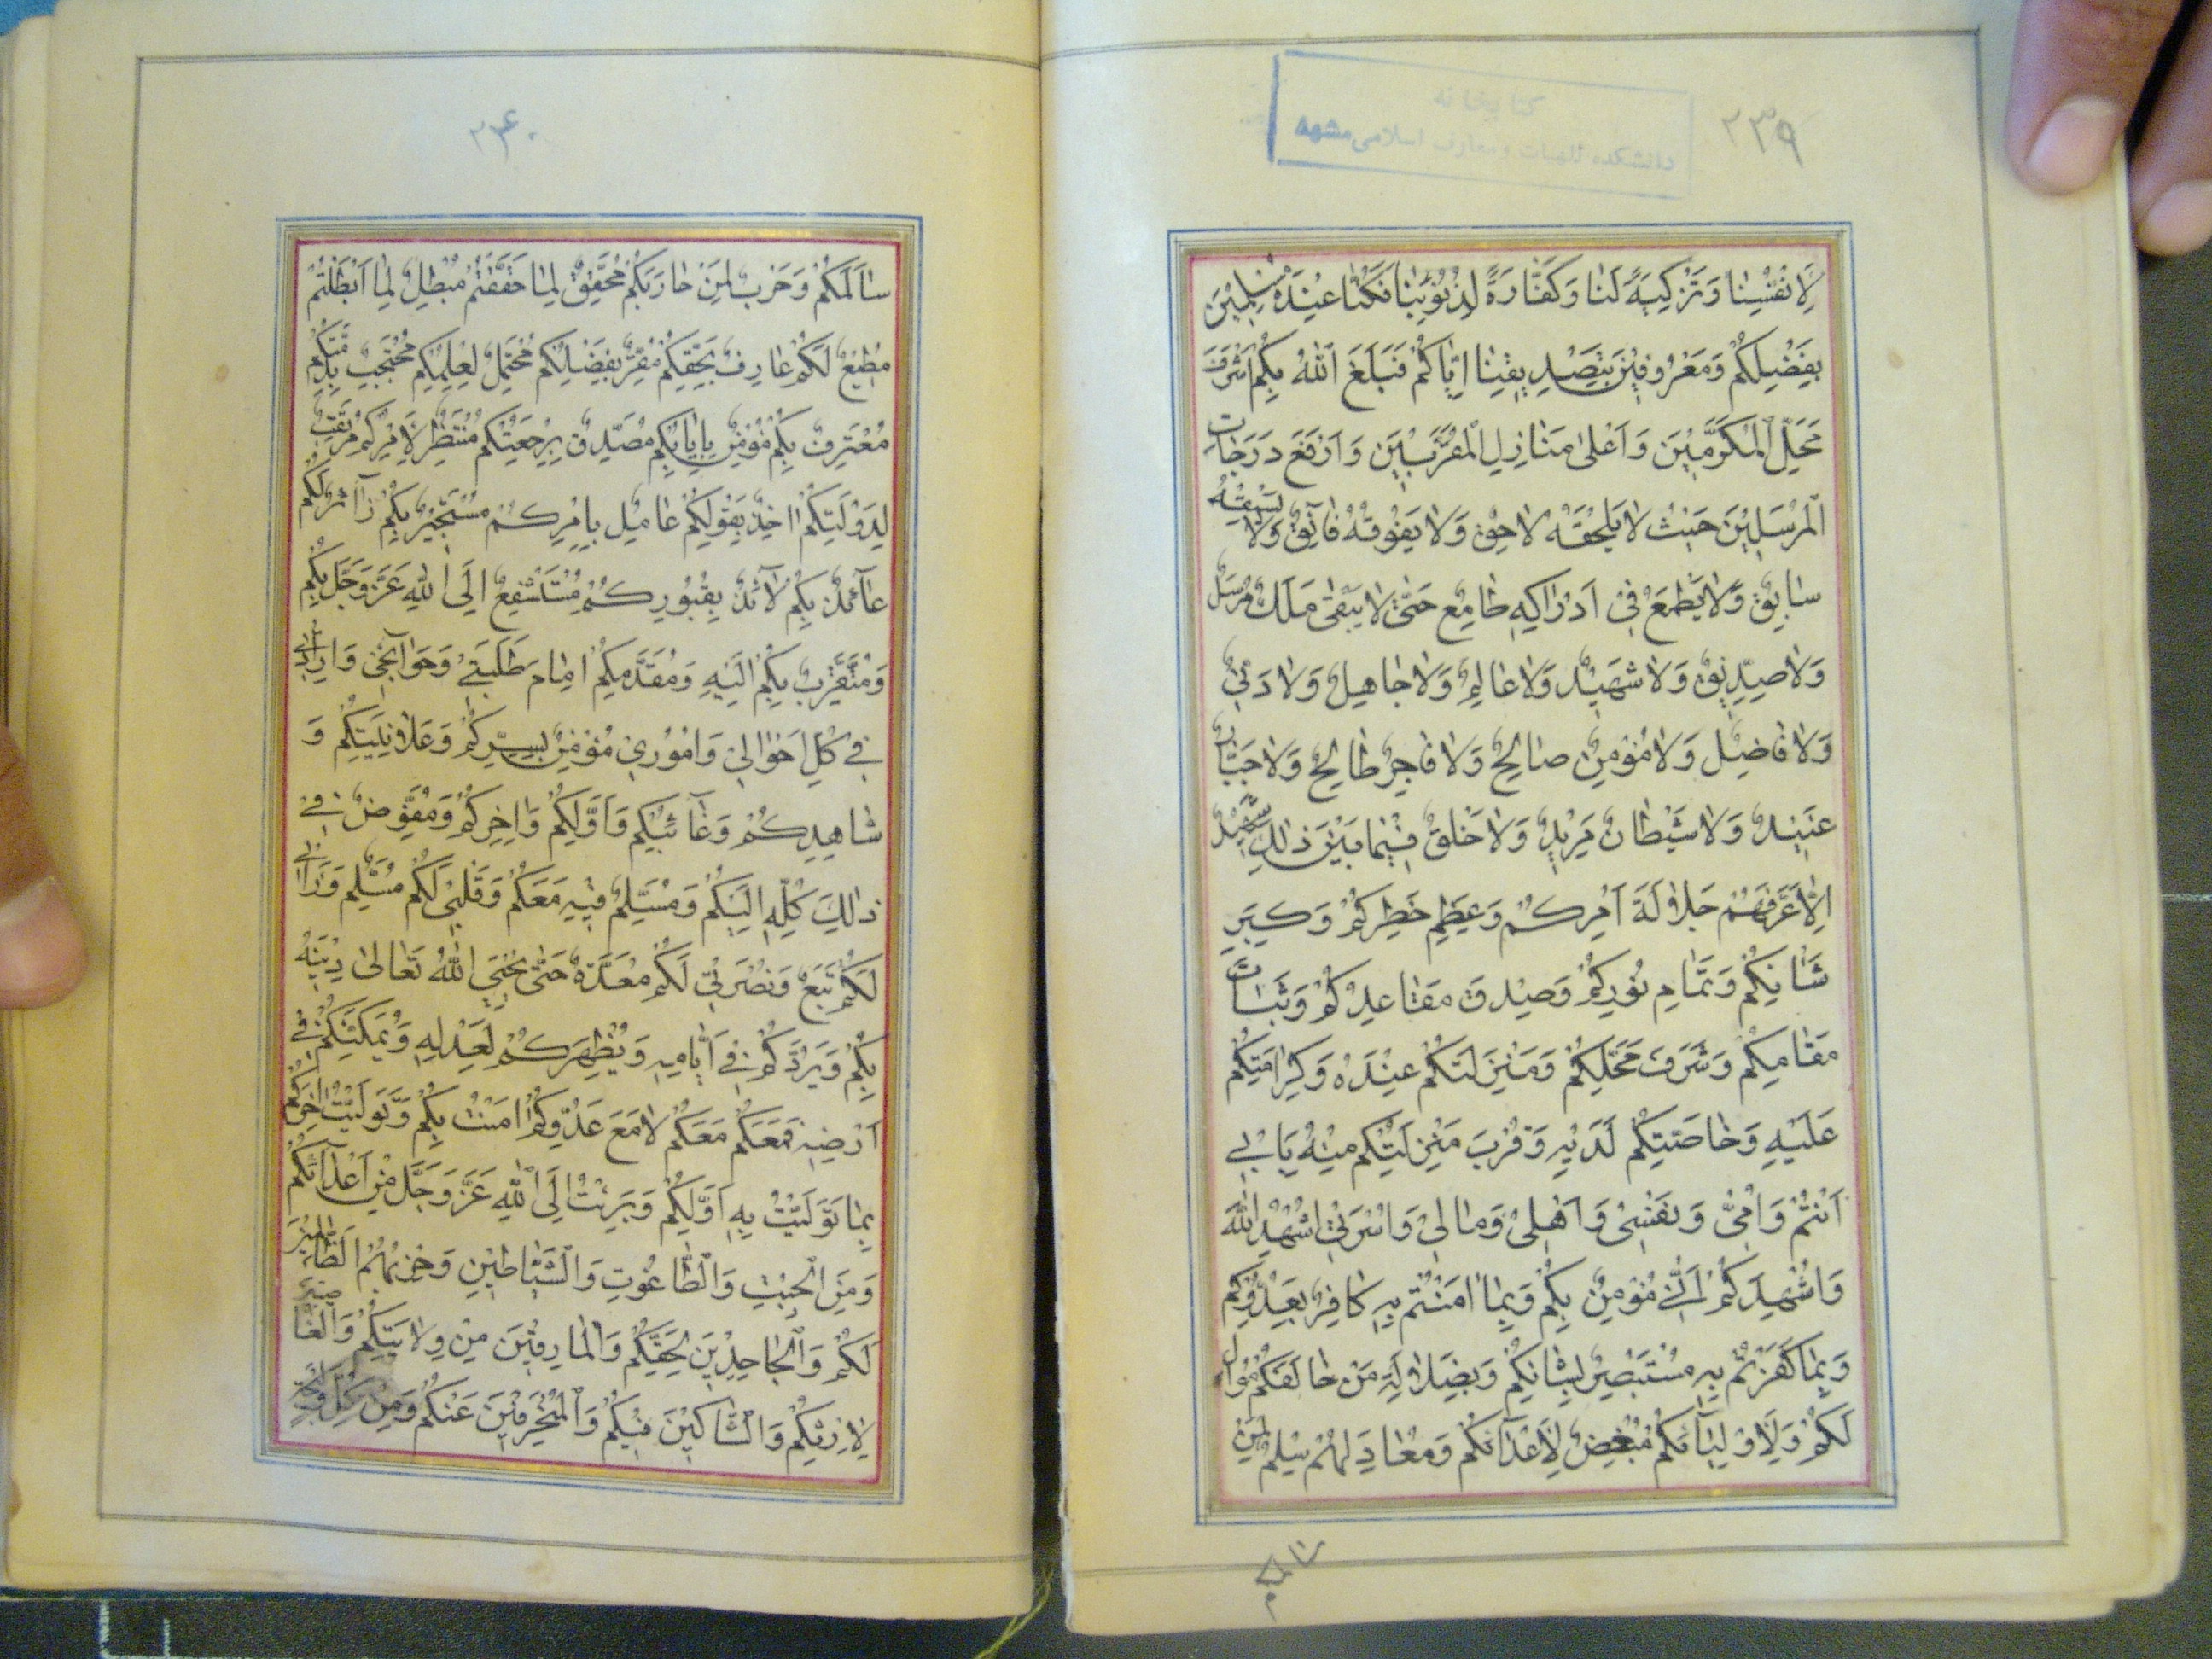 ۲۳۹
کتابخانه
دانشکده الهیات و معارف اسلامی مشهد
لِاَنْفُسِنا وَتَزْكِيَةً لَنا وَكَفّارَةً لِذُنُوبِنا فَكُنّا عِنْدَهُ مُسْلِمينَ
بِفَضْلِكُمْ وَمَعْرُوفينَ بِتَصْديقِنا اِيّاكُمْ فَبَلَغَ اللهُ بِكُمْ اَشْرَفَ
مَحَلِّ الْمُكَرَّمينَ وَاَعْلى مَنازِلِ الْمُقَرَّبينَ وَاَرْفَعَ دَرَجاتِ
الْمُرْسَلينَ حَيْثُ لا يَلْحَقُهُ لاحِقٌ وَلا يَفُوقُهُ فآئِقٌ وَلا يَسْبِقُهُ
سابِقٌ وَلا يَطْمَعُ فى اِدْراكِهِ طامِعٌ حَتّى لا يَبْقى مَلَكٌ مُرْسَلٌ
وَلا صِدّيقٌ وَلا شَهيدٌ وَلا عالِمٌ وَلا جاهِلٌ وَلا دَنِىٌّ
وَلا فاضِلٌ وَلا مُؤْمِنٌ صالِحٌ وَلا فاجِرٌ طالِحٌ وَلا جَبّارٌ
عَنيدٌ وَلا شَيْطانٌ مَريدٌ وَلا خَلْقٌ فيما بَيْنَ ذلِكَ شَهيدٌ
اِلّا عَرَّفَهُمْ جَلالَةَ اَمْرِكُمْ وَعِظَمَ خَطَرِكُمْ وَكِبَرَ
شَاْنِكُمْ وَتَمامَ نُورِكُمْ وَصِدْقَ مَقاعِدِكُمْ وَثَباتَ
مَقامِكُمْ وَشَرَفَ مَحَلِّكُمْ وَمَنْزِلَتَكُمْ عِنْدَهُ وَكَرامَتَكُمْ
عَلَيْهِ وَخاصَّتَكُمْ لَدَيْهِ وَقُرْبَ مَنْزِلَتِكُمْ مِنْهُ بِاَبى
اَنْتُمْ وَاُمّى وَنَفْسى وَاَهْلى وَمالى وَاُسْرَتى اُشْهِدُ اللهَ
وَاُشْهِدُكُمْ اَنّى مُؤْمِنٌ بِكُمْ وَبِما امَنْتُمْ بِهِ كافِرٌ بِعَدُوِّكُمْ
وَبِما كَفَرْتُمْ بِهِ مُسْتَبْصِرٌ بِشَاْنِكُمْ وَبِضَلالَةِ مَنْ خالَفَكُمْ مُوالٍ
لَكُمْ وَلِاَوْلِيآئِكُمْ مُبْغِضٌ لِاَعْدآئِكُمْ وَمُعادٍ لَهُمْ سِلْمٌ لِمَنْ
سالمکم
۲۴۰
سالَمَكُمْ وَحَرْبٌ لِمَنْ حارَبَكُمْ مُحَقِّقٌ لِما حَقَّقْتُمْ مُبْطِلٌ لِما اَبْطَلْتُمْ
مُطيعٌ لَكُمْ عارِفٌ بِحَقِّكُمْ مُقِرٌّ بِفَضْلِكُمْ مُحْتَمِلٌ لِعِلْمِكُمْ مُحْتَجِبٌ بِذِمَّتِكُمْ
مُعْتَرِفٌ بِكُمْ مُؤْمِنٌ بِاِيابِكُمْ مُصَدِّقٌ بِرَجْعَتِكُمْ مُنْتَظِرٌ لِاَمْرِكُمْ مُرْتَقِبٌ
لِدَوْلَتِكُمْ اخِذٌ بِقَوْلِكُمْ عامِلٌ بِاَمْرِكُمْ مُسْتَجيرٌ بِكُمْ زآئِرٌ لَكُمْ
عآئِذٌ بِكُمْ لآئِذٌ بِقُبُورِكُمْ مُسْتَشْفِعٌ اِلَى اللهِ عَزَّ وَجَلَّ بِكُمْ
وَمُتَقَرِّبٌ بِكُمْ اِلَيْهِ وَمُقَدِّمُكُمْ اَمامَ طَلِبَتى وَحَوآئِجى وَاِرادَتى
فى كُلِّ اَحْوالى وَاُمُورى مُؤْمِنٌ بِسِرِّكُمْ وَعَلانِيَتِكُمْ وَ
شاهِدِكُمْ وَغآئِبِكُمْ وَاَوَّلِكُمْ وَاخِرِكُمْ وَمُفَوِّضٌ فى
ذلِكَ كُلِّهِ اِلَيْكُمْ وَمُسَلِّمٌ فيهِ مَعَكُمْ وَقَلْبى لَكُمْ مُسَلِّمٌ وَرَاْيى
لَكُمْ تَبَعٌ وَنُصْرَتى لَكُمْ مُعَدَّةٌ حَتّى يُحْيِىَ اللهُ تَعالى دينَهُ
بِكُمْ وَيَرُدَّكُمْ فى اَيّامِهِ وَيُظْهِرَكُمْ لِعَدْلِهِ وَيُمَكِّنَكُمْ فى
اَرْضِهِ فَمَعَكُمْ مَعَكُمْ لا مَعَ عَدُوِّكُمْ امَنْتُ بِكُمْ وَتَوَلَّيْتُ اخِرَكُمْ
بِما تَوَلَّيْتُ بِهِ اَوَّلَكُمْ وَبَرِئْتُ اِلَى اللهِ عَزَّ وَجَلَّ مِنْ اَعْدآئِكُمْ
وَمِنَ الْجِبْتِ وَالطّاغُوتِ وَالشَّياطينِ وَحِزْبِهُمُ الظّالِمينَ
لَكُمْ وَالْجاحِدينَ لِحَقِّكُمْ وَالْمارِقينَ مِنْ وِلايَتِكُمْ وَالْغاصِبينَ
لِاِرْثِكُمْ وَالشّاكّينَ فيكُمْ وَالْمُنْحَرِفينَ عَنْكُمْ وَمِنْ كُلِّ وَليجَةٍ